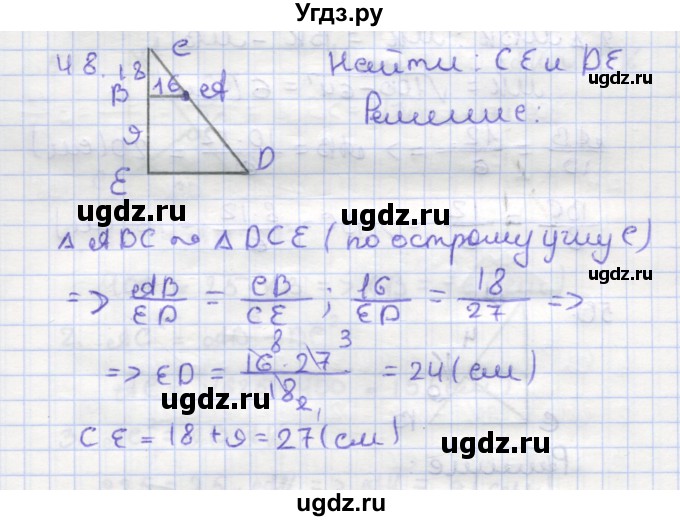 Угдз.ру
48.
C
18
16
B
A
9
E
D
Найти: CE и DE
Решение:
ugdz.ru
ugdz.ru
ugdz.ru
Δ ABC ∾ Δ DCE (по острому углу C)
=> AB/ED = CB/CE ; 16/ED = 18/27 =>
ugdz.ru
ugdz.ru
=> ED = 16 8 · 27 3 / 18 2 1 = 24 (см)
ugdz.ru
CE = 18 + 9 = 27 (см)
ugdz.ru
ugdz.ru